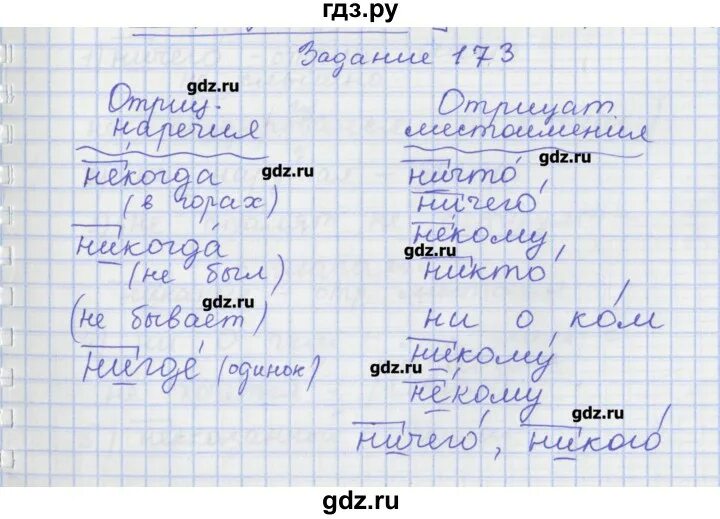 гдз.ру
Задание 173
gdz.ru
Отриц.
наречия
Отрицат.
местоимения
gdz.ru
gdz.ru
не́когда
(в горах)
никогда́
(не был)
gdz.ru
(не бывает)
нигде́ (одинок)
ничто́,
ничего́,
не́кому,
gdz.ru
никто́,
ни о ко́м
никому́
gdz.ru
не́кому
gdz.ru
ничего́, никого́
gdz.ru